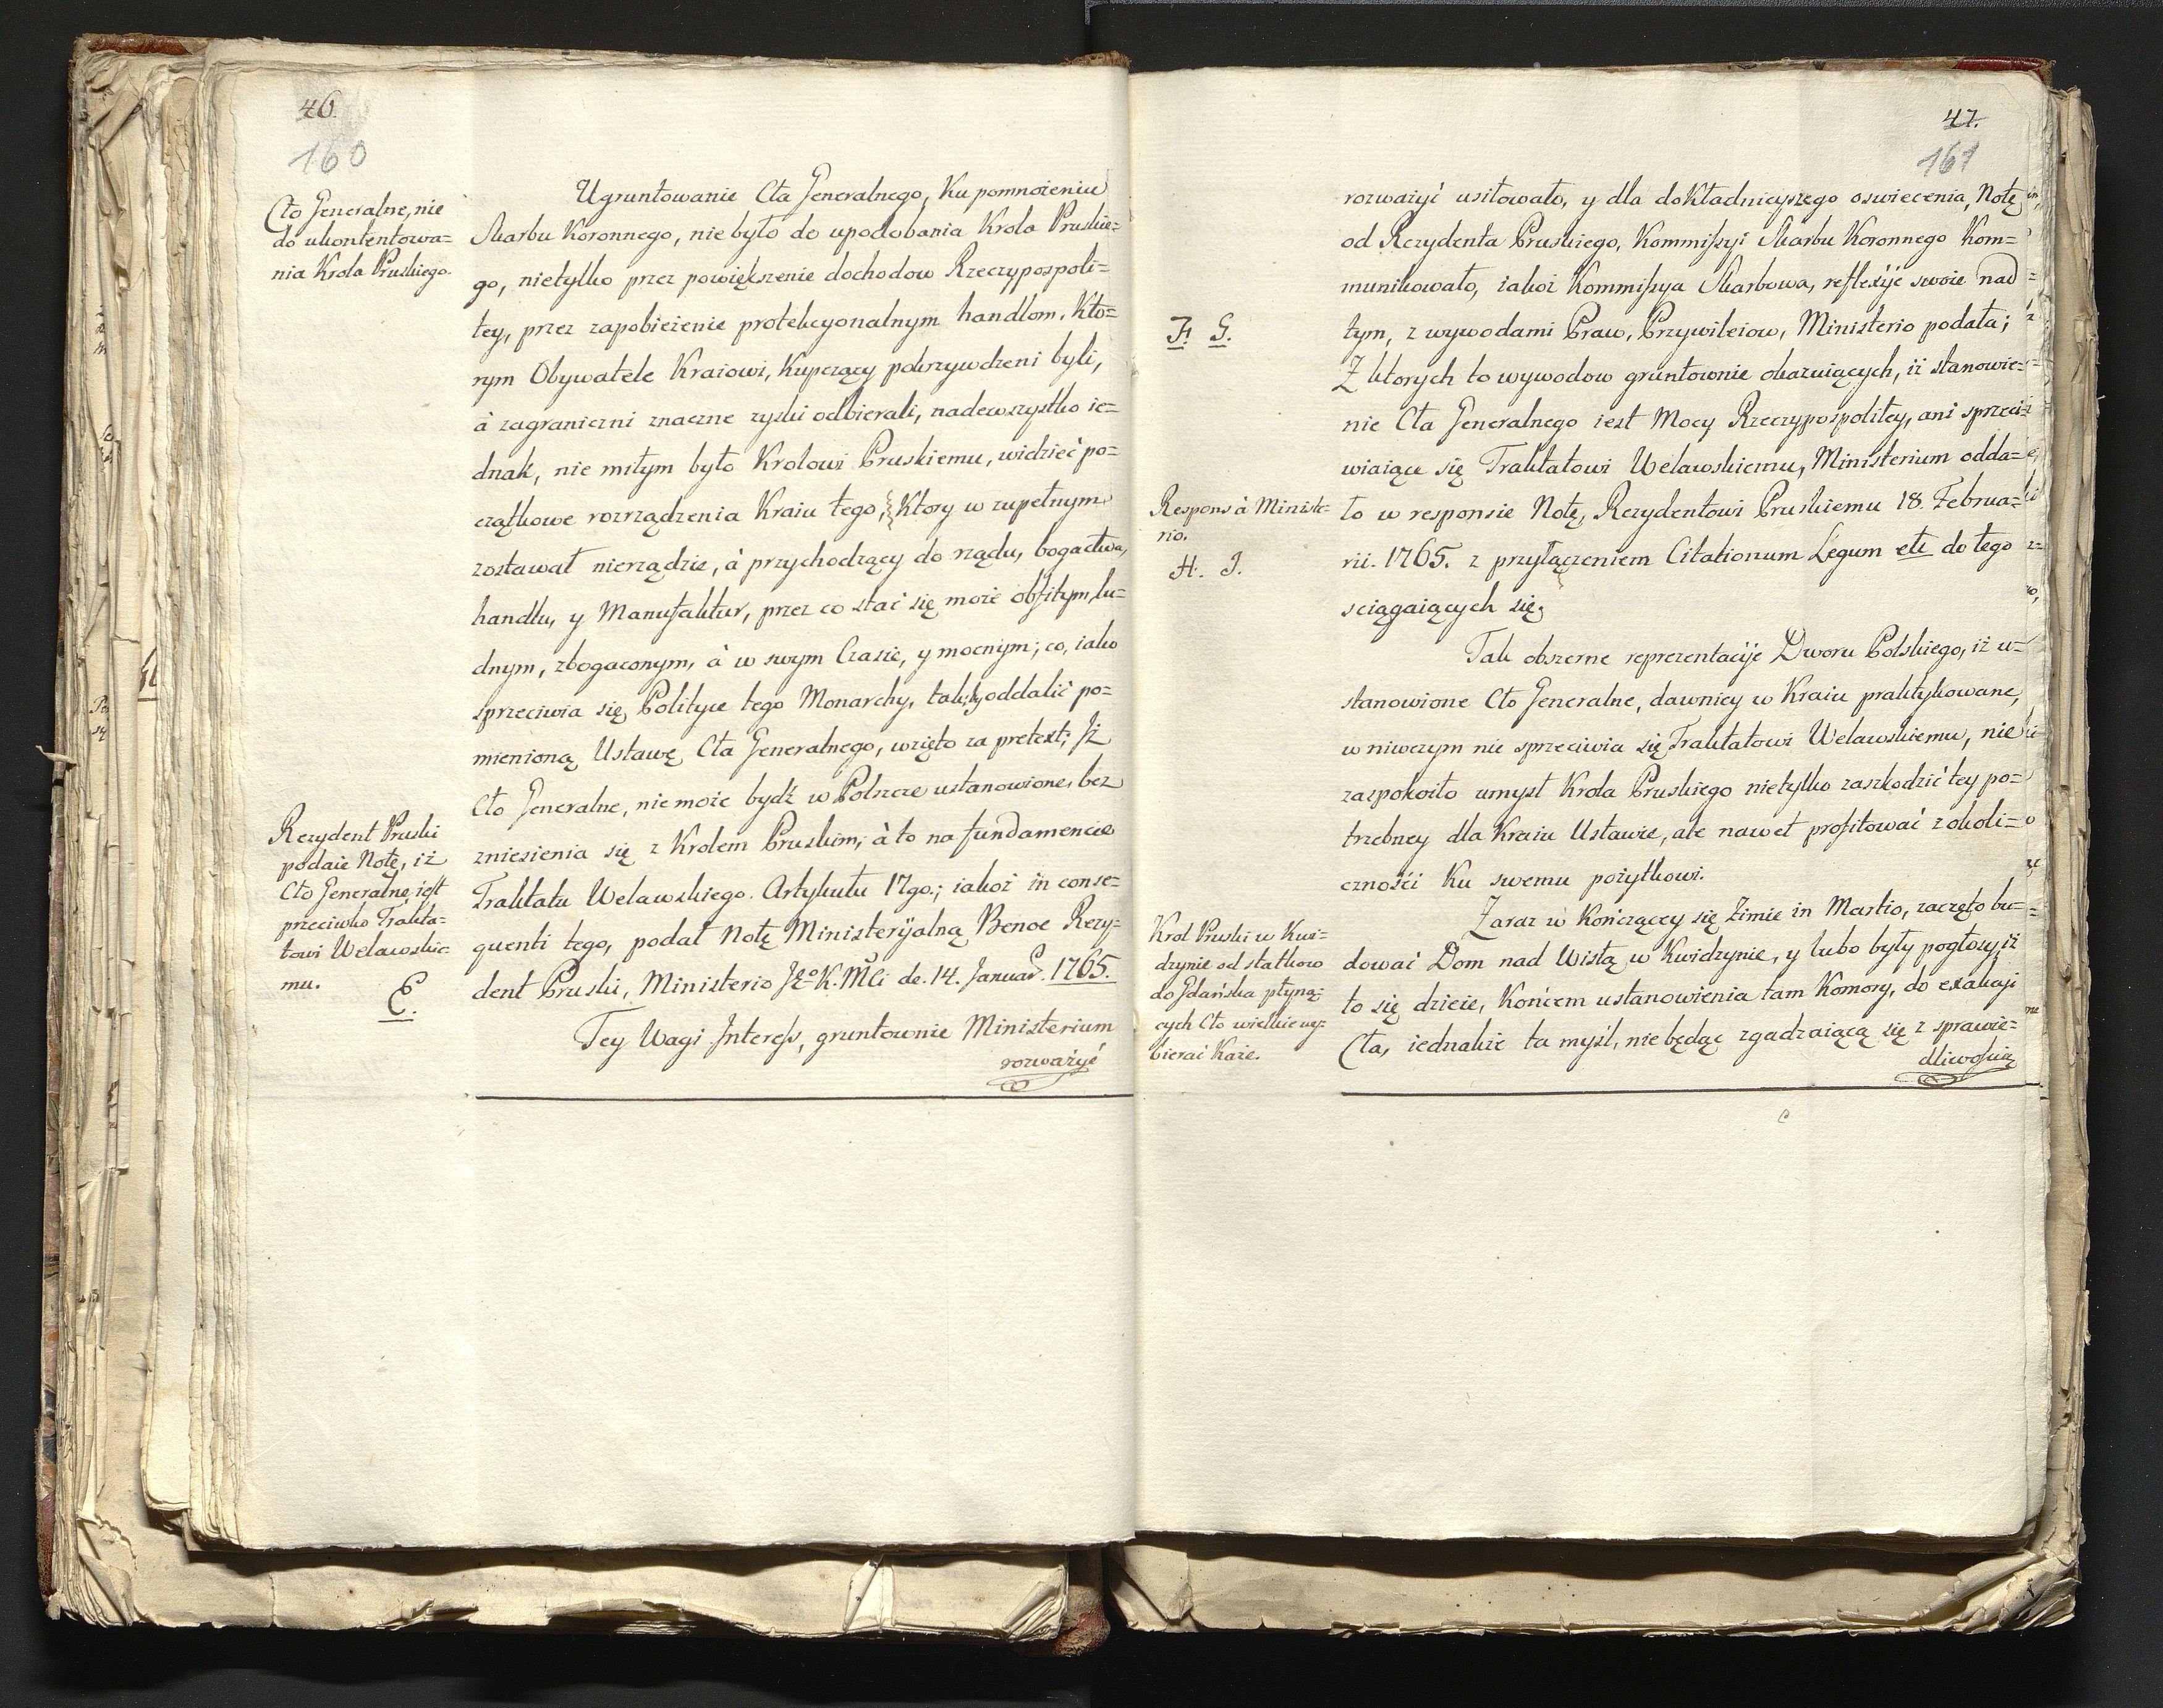 46.
160
Cło Generalne, nie
do ukontentowa=
nia Krola Pruskiego.
Ugruntowanie Cła Generalnego, Ku pomnożeniu
Skarbu Koronnego, nie było do upodobania Krola Pruskie=
go, nietylko przez powiększenie dochodow Rzeczypospoli=
tey, przez zapobieżenie protekcyonalnym handlom, Kto=
rym Obywatele Kraiowi, Kupczący pokrzywdzeni byli,
à zagraniczni znaczne zyski odbierali, nadewszystko ie=
dnak, nie miłym było Krolowi Pruskiemu, widzieć po=
czątkowe rozrządzenia Kraiu tego, Ktory w zupełnym
zostawał nierządzie, à przychodzący do rządu, bogactwa,
handlu, y Manufaktur, przez co stać się może obfitym, lu=
dnym, zbogaconym, à w swym Czasie, y mocnym; co, iako
sprzeciwia się Polityce tego Monarchy, tak, by oddalić po=
mienioną Ustawę Cła Generalnego, wzięto za pretext; Iż
Cło Generalne, nie może bydź w Polszcze ustanowione, bez
zniesienia się z Krolem Pruskim, à to na fundamencie
Traktatu Welawskiego. Artykułu 17go.; iakoż in conse=
quenti tego, podał Notę Ministeryalną Benoe Rezy=
dent Pruski, Ministerio Jgo K. Mci de. 14. Januar. 1765.
Rezydent Pruski
podaie Notę, iż
Cło Generalne, iest
przeciwko Trakta=
towi Welawskie=
mu.
E.
Tey Wagi Interess, gruntownie Ministerium
rozważyć
47.
161
rozważyć usiłowało, y dla dokładnieyszego oswiecenia, Notę
od Rezydenta Pruskiego, Kommissyi Skarbu Koronnego Kom=
munikowało, iakoż Kommissya Skarbowa, reflexye swoie nad
F. G.
tym, z wywodami Praw, Przywileiow, Ministerio podała;
Z ktorych to wywodow gruntownie okazuiących, iż stanowie=
nie Cła Generalnego iest Mocy Rzeczypospolitey, ani sprzeci=
wiaiące się Traktatowi Welawskiemu, Ministerium odda=
Respons à Ministe=
rio.
H. I.
ło w responsie Notę, Rezydentowi Pruskiemu 18. Februa=
rii. 1765. z przyłączeniem Citationum Legum etc do tego
sciągaiących się;
Tak obszerne reprezentacye Dworu Polskiego, iż u=
stanowione Cło Generalne, dawniey w Kraiu praktykowane,
w niwczym nie sprzeciwia się Traktatowi Welawskiemu, nie
zaspokoiło umysł Krola Pruskiego nietylko zaszkodzić tey po=
trzebney dla Kraiu Ustawie, ale nawet profitować z okoli=
czności Ku swemu pożytkowi.
Krol Pruski w Kwi=
dzynie od statkow
do Gdańska płyną=
cych Cło wielkie wy=
bierać Każe.
Zaraz w Kończącey się Zimie in Martio, zaczęto bu=
dować Dom nad Wisłą w Kwidzynie, y lubo były pogłosy, iż
to się dzieie, Końcem ustanowienia tam Komory, do exakcyi
Cła, iednakże ta myśl, nie będąc zgadzaiącą się z sprawie=
dliwością